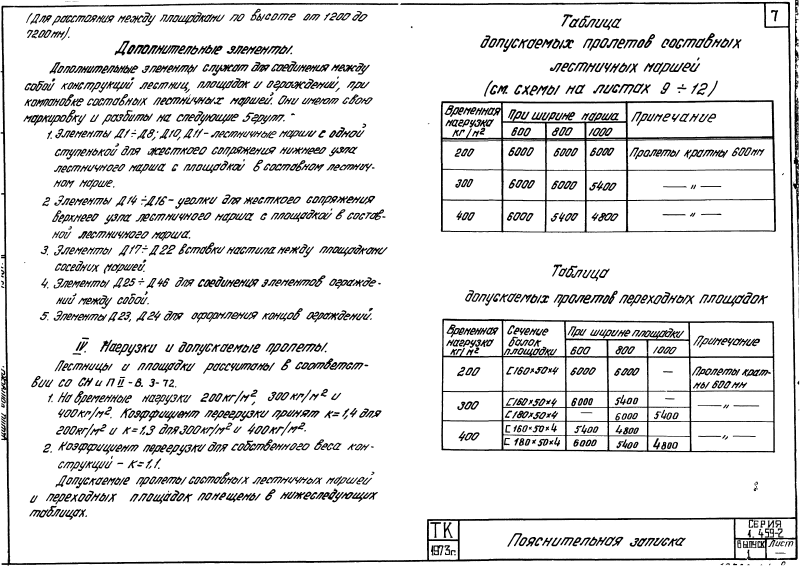 (Для расстояния между площадками по высоте от 1200 до
7200мм).
Дополнительные элементы.
Дополнительные элементы служат для соединения между
собой конструкций лестниц, площадок и ограждений, при
компановке составных лестничных маршей. Они имеют свою
маркировку и разбиты на следующие 5 групп.
1. Элементы Д1÷Д8; Д10, Д11 – лестничные марши с одной
ступенькой для жесткого сопряжения нижнего узла
лестничного марша с площадкой в составном лестнич-
ном марше.
2 Элементы Д14÷Д16 – уголки для жесткого сопряжения
верхнего узла лестничного марша с площадкой в состав-
ной лестничного марша.
3. Элементы Д17÷Д22 вставки настила между площадками
соседних маршей.
4. Элементы Д25÷Д46 для соединения элементов огражде-
ний между собой.
5. Элементы Д23, Д24 для оформления концов ограждений.
IV. Нагрузки и допускаемые пролеты.
Лестницы и площадки рассчитаны в соответст-
вии со СН и П II-В. 3-72.
1. На временные нагрузки 200кг/м², 300кг/м² и
400кг/м². Коэффициент перегрузки принят к=1,4 для
200кг/м² и к=1,3 для 300кг/м² и 400кг/м².
2. Коэффициент перегрузки для собственного веса кон-
струкций – к=1,1.
Допускаемые пролеты составных лестничных маршей
и переходных площадок помещены в нижеследующих
таблицах.
7
Таблица
допускаемых пролетов составных
лестничных маршей
(см. схемы на листах 9÷12)
Временная нагрузка кг/м² При ширине марша Примечание
600 800 1000
200 6000 6000 6000 Пролеты кратны 600мм
300 6000 6000 5400 — „ —
400 6000 5400 4800 — „ —
Таблица
допускаемых пролетов переходных площадок
Временная нагрузка кг/м² Сечение балок площадки При ширине площадки Примечание
600 800 1000
200 С160×50×4 6000 6000 — Пролеты крат-
ны 600мм
300 С160×50×4 6000 5400 — — „ —
С180×50×4 — 6000 5400
400 С160×50×4 5400 4800 — „ —
С180×50×4 6000 5400 4800
ТК
1973г.
Пояснительная записка
СЕРИЯ
1.459-2
Выпуск Лист
1 —